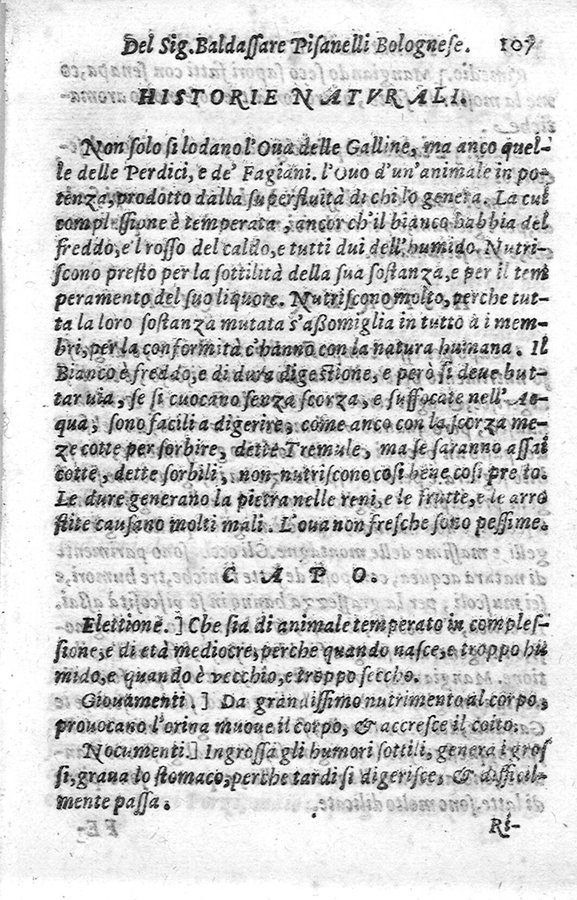 Del Sig. Baldassare Pisanelli Bolognese. 107
HISTORIE NATVRALI.
Non solo si lodano l'Oua delle Galline, ma anco quel-
le delle Perdici, e de' Fagiani. l'Ouo d'un'animale in po-
tenza, prodotto dalla superfluità di chi lo genera. La cui
complessione è temperata, ancor ch'il bianco habbia del
freddo, e'l rosso del caldo, e tutti dui dell'humido. Nutri-
scono presto per la sottilità della sua sostanza, e per il tem
peramento del suo liquore. Nutriscono molto, perche tut-
ta la loro sostanza mutata s'assomiglia in tutto à i mem-
bri, per la conformità c'hanno con la natura humana. Il
Bianco è freddo, e di dura digestione, e però si deue but-
tar uia, se si cuocano senza scorza, e suffocate nell' Ac-
qua, sono facili a digerire, come anco con la scorza me-
ze cotte per sorbire, dette Tremule, ma se saranno assai
cotte, dette sorbili, non nutriscono così bene così presto.
Le dure generano la pietra nelle reni, e le frutte, e le arro
stite causano molti mali. L'oua non fresche sono pessime.
CAPO.
Elettione.] Che sia di animale temperato in comples-
sione, e di età mediocre, perche quando nasce, e troppo hu
mido, e quando è vecchio, e troppo secco.
Giouamenti.] Da grandissimo nutrimento al corpo,
prouocano l'orina muoue il corpo, & accresce il coito.
Nocumenti.] Ingrossa gli humori sottili, genera i gros
si, graua lo stomaco, perche tardi si digerisce, & difficil-
mente passa.
Ri-